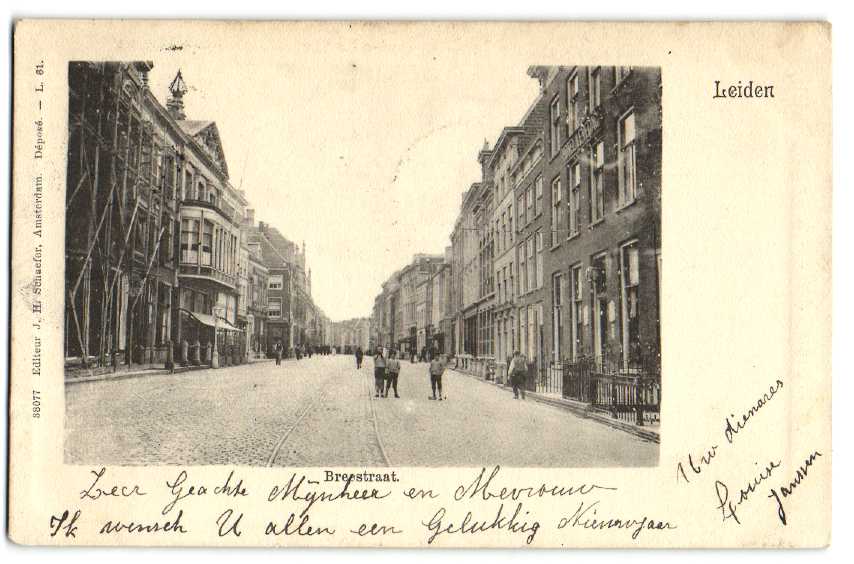 Leiden
38077 Editeur J. H. Schaefer, Amsterdam. Déposé. — L. 61.
Breestraat.
Zeer Geachte Mijnheer en Mevrouw
Ik wensch U allen een Gelukkig Nieuwjaar
Uw dienares
Louise
Janssen